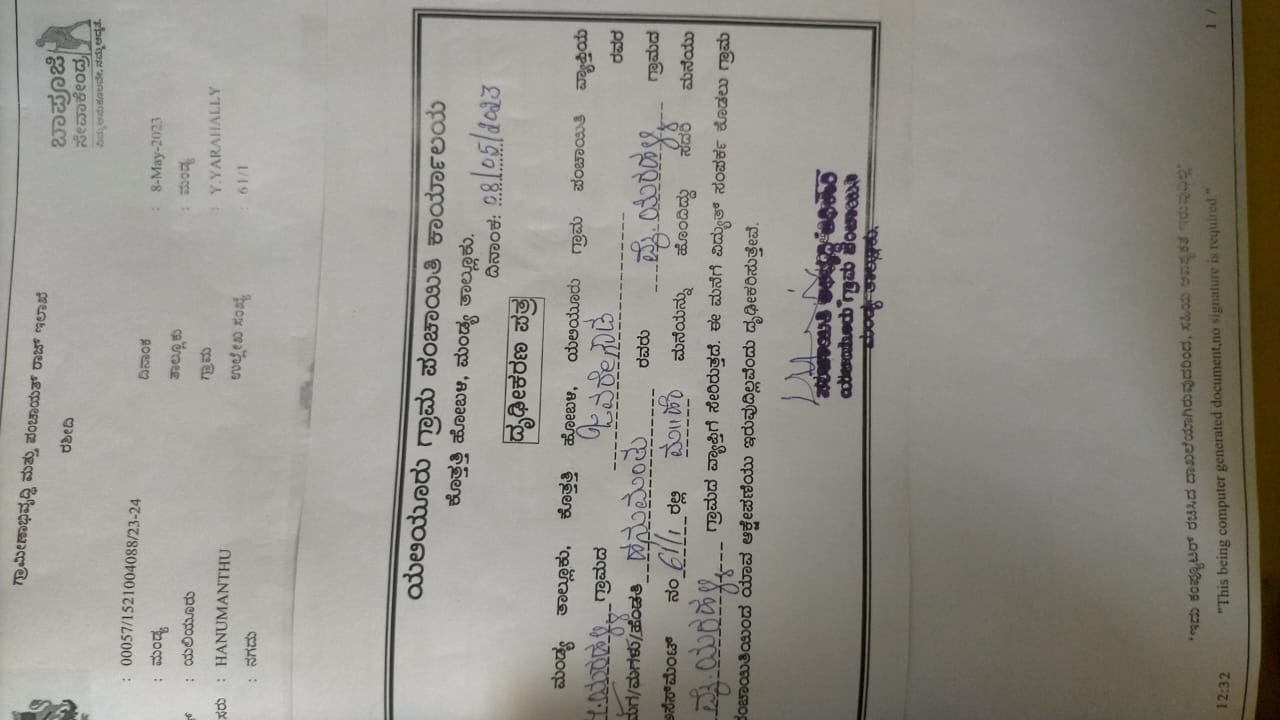 ಗ್ರಾಮೀಣಾಭಿವೃದ್ಧಿ ಮತ್ತು ಪಂಚಾಯತ್ ರಾಜ್ ಇಲಾಖೆ
ರಶೀದಿ
ಬಾಪೂಜಿ
ಸೇವಾಕೇಂದ್ರ
: 00057/1521004088/23-24 ದಿನಾಂಕ : 8-May-2023
: ಮಂಡ್ಯ ತಾಲ್ಲೂಕು : ಮಂಡ್ಯ
: ಯಲಿಯೂರು ಗ್ರಾಮ : Y.YARAHALLY
: HANUMANTHU ಉಲ್ಲೇಖ ಸಂಖ್ಯೆ : 61/1
: ನಗದು
ಯಲಿಯೂರು ಗ್ರಾಮ ಪಂಚಾಯಿತಿ ಕಾರ್ಯಾಲಯ
ಕೊತ್ತತ್ತಿ ಹೋಬಳಿ, ಮಂಡ್ಯ ತಾಲ್ಲೂಕು.
ದಿನಾಂಕ: 08/05/2023
ದೃಢೀಕರಣ ಪತ್ರ
ಮಂಡ್ಯ ತಾಲ್ಲೂಕು, ಕೊತ್ತತ್ತಿ ಹೋಬಳಿ, ಯಲಿಯೂರು ಗ್ರಾಮ ಪಂಚಾಯಿತಿ ವ್ಯಾಪ್ತಿಯ
ಯರಹಳ್ಳಿ ಗ್ರಾಮದ ರವರ
ಮಗ/ಮಗಳು/ಹೆಂಡತಿ ಹನುಮಂತು ರವರು ವೈ.ಯರಹಳ್ಳಿ ಗ್ರಾಮದ
ಅಸೆಸ್‌ಮೆಂಟ್ ನಂ 61/1 ರಲ್ಲಿ ಮನೆಯನ್ನು ಹೊಂದಿದ್ದು ಸದರಿ ಮನೆಯು
ವೈ.ಯರಹಳ್ಳಿ ಗ್ರಾಮದ ವ್ಯಾಪ್ತಿಗೆ ಸೇರಿರುತ್ತದೆ. ಈ ಮನೆಗೆ ವಿದ್ಯುತ್ ಸಂಪರ್ಕ ಕೊಡಲು ಗ್ರಾಮ
ಪಂಚಾಯಿತಿಯಿಂದ ಯಾವ ಆಕ್ಷೇಪಣೆಯು ಇರುವುದಿಲ್ಲವೆಂದು ದೃಢೀಕರಿಸುತ್ತೇವೆ.
ಯಲಿಯೂರು ಗ್ರಾಮ ಪಂಚಾಯಿತಿ
ಮಂಡ್ಯ ತಾಲ್ಲೂಕು.
"ಇದು ಕಂಪ್ಯೂಟರ್ ರಚಿಸಿದ ದಾಖಲೆಯಾಗಿರುವುದರಿಂದ, ಸಹಿಯ ಅವಶ್ಯಕತೆ ಇರುವುದಿಲ್ಲ"
"This being computer generated document,no signature is required"
12:32 1 /